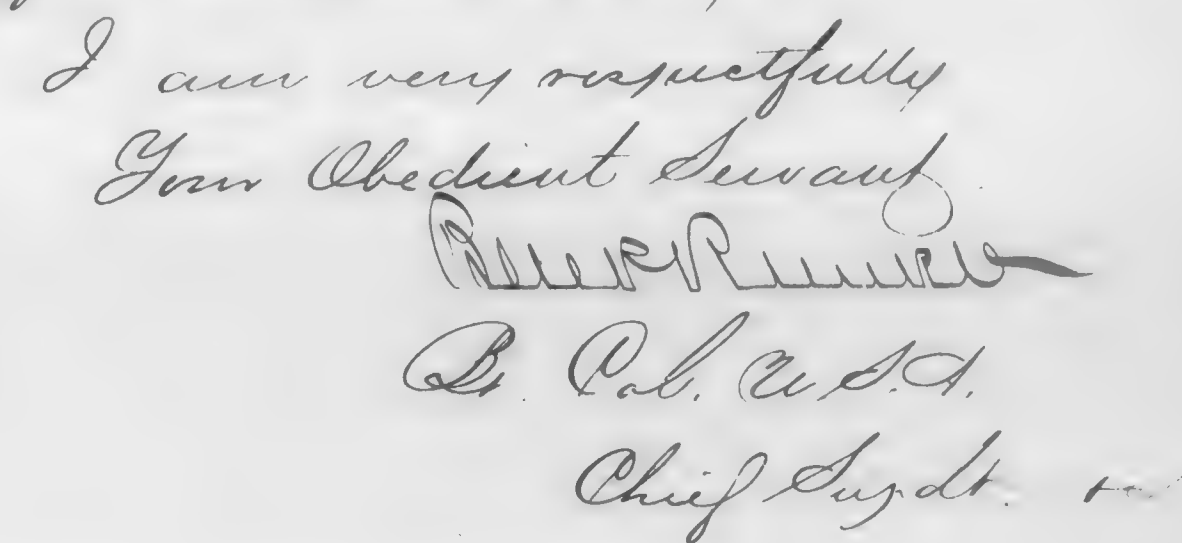 I am very respectfully
Your Obedient Servant
Ben P Runkle
Bt. Col. U.S.A.
Chief Supdt.